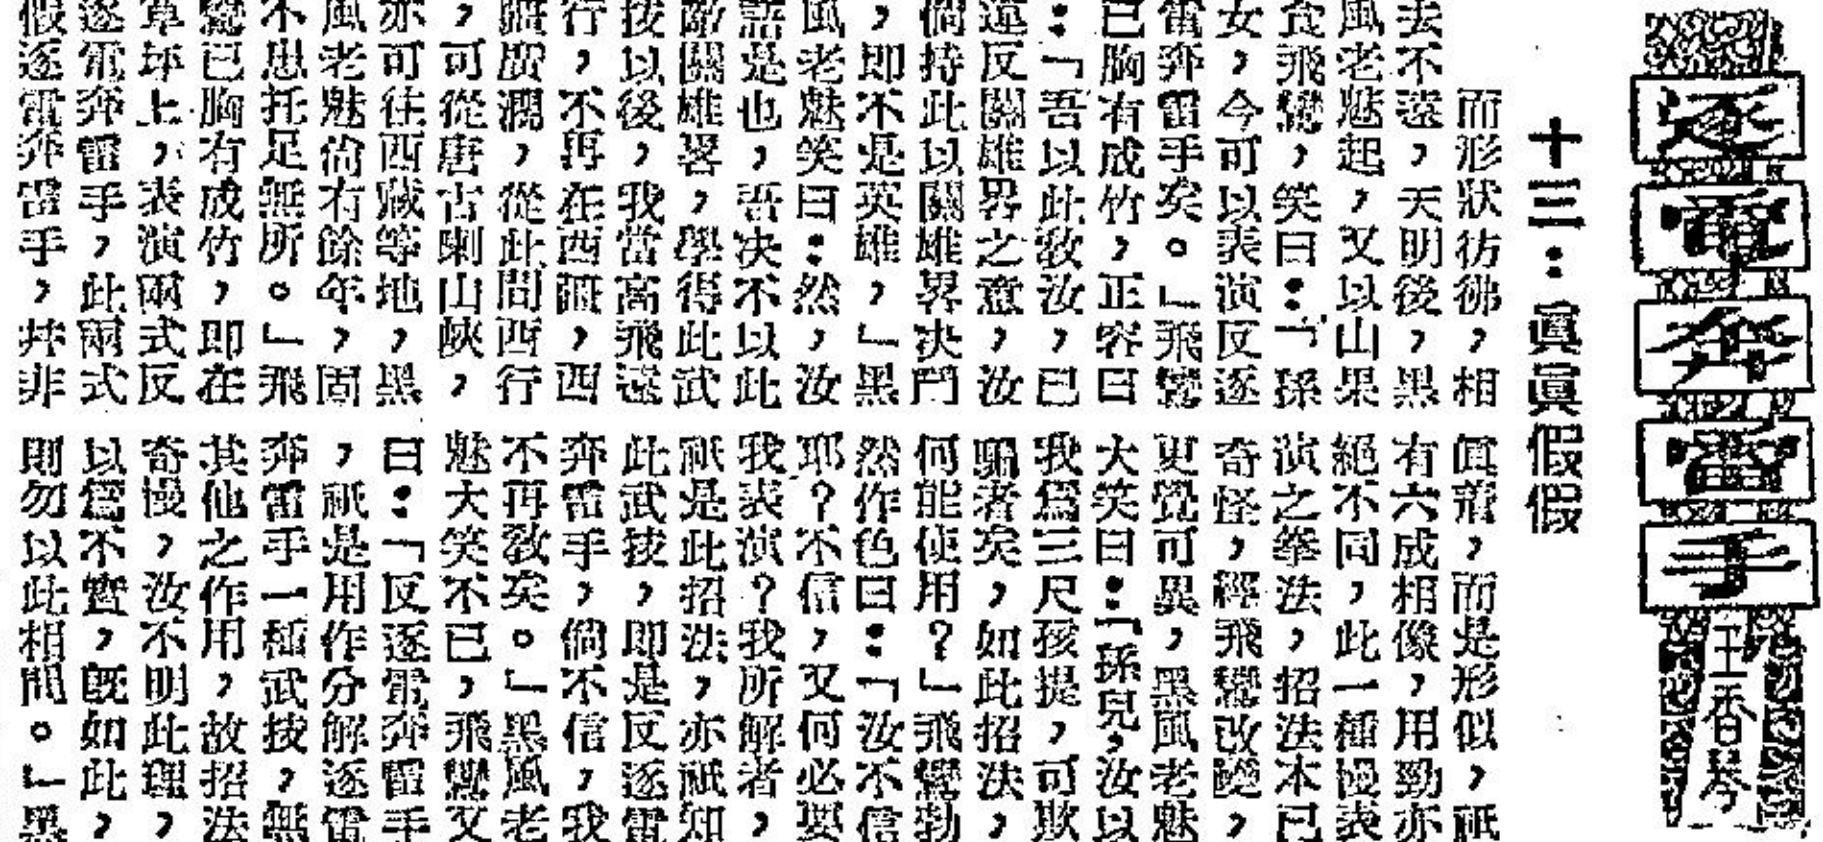 逐電奔雷手
王香琴
十三：眞眞假假
而形狀彷彿，相
去不遠，天明後，黑
風老魅起，又以山果
食飛鸞，笑曰：「孫
女，今可以表演反逐
雷奔雷手矣。」飛鸞
已胸有成竹，正容曰
：「吾以此敎汝，已
違反關雄畧之意，汝
倘持此以關雄畧决鬥
，即不是英雄，」黑
風老魅笑曰：然，汝
語是也，吾决不以此
敵關雄畧，學得此武
技以後，我當高飛遠
行，不再在西疆，西
疆廣濶，從此間西行
，可從唐古喇山陝，
亦可往西藏等地，黑
風老魅尙有餘年，固
不患托足無所。」飛
鸞已胸有成竹，即在
草坪上，表演兩式反
逐電奔雷手，此兩式
假逐電奔雷手，幷非
眞，而是形似，祇
有六成相像，用勁亦
絕不同，此一種慢表
演之拳法，招法本已
奇怪，經飛鸞改變，
更覺可異，黑風老魅
大笑曰：「孫兒，汝以
我爲三尺孩提，可欺
騙者矣，如此招法，
何能使用？」飛鸞勃
然作色曰：「汝不信
耶？不信，又何必要
我表演？我所解者，
祇是此招法，亦祇知
此武技，即是反逐電
奔雷手，倘不信，我
不再敎矣。」黑風老
魅大笑不已，飛鸞又
曰：「反逐電奔雷手
，祇是用作分解逐電
奔雷手一種武技，無
其他之作用，故招法
奇慢，汝不明此理，
以爲不實，旣如此，
則勿以此相問。」黑